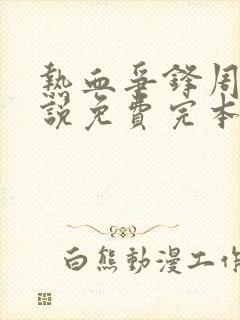 熱血爭鋒周
說免費完本
白熊動漫工作